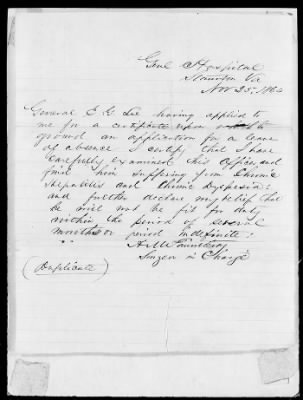 Genl Hospital
Staunton Va
Nov 25. 1864
General E. G. Lee having applied to
me for a certificate upon which to
ground an application for a leave
of absence I certify that I have
carefully examined this officer and
find him suffering from Chronic
Hepatitis and Chronic Dyspepsia:
and further declare my belief that
he will not be fit for duty
within the period of several
months or period indefinite.
A. M.
Surgeon in Charge
(Duplicate)